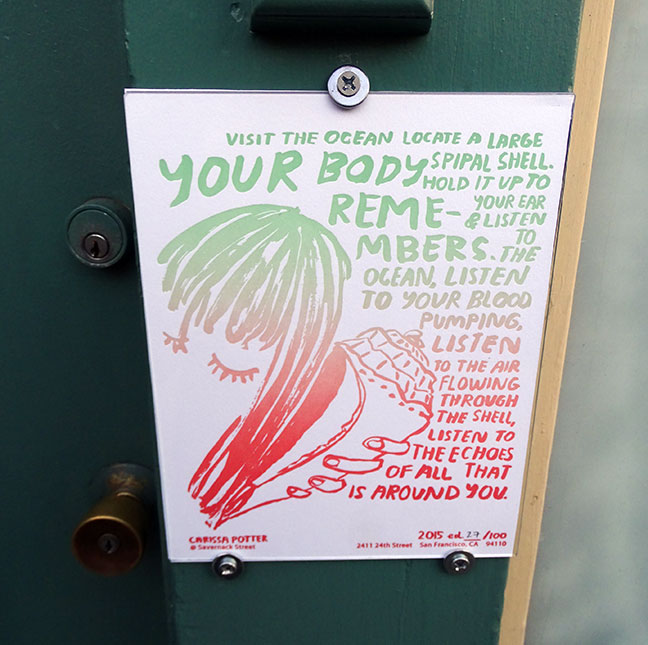 VISIT THE OCEAN LOCATE A LARGE
SPIPAL SHELL.
HOLD IT UP TO
YOUR EAR
& LISTEN
TO
THE
OCEAN, LISTEN
TO YOUR BLOOD
PUMPING,
LISTEN
TO THE AIR
FLOWING
THROUGH
THE SHELL,
LISTEN TO
THE ECHOES
OF ALL THAT
IS AROUND YOU.
YOUR BODY
REME-
MBERS.
CARISSA POTTER
@ Savernack Street
2411 24th Street San Francisco, CA 94110
2015 ed. 27 /100